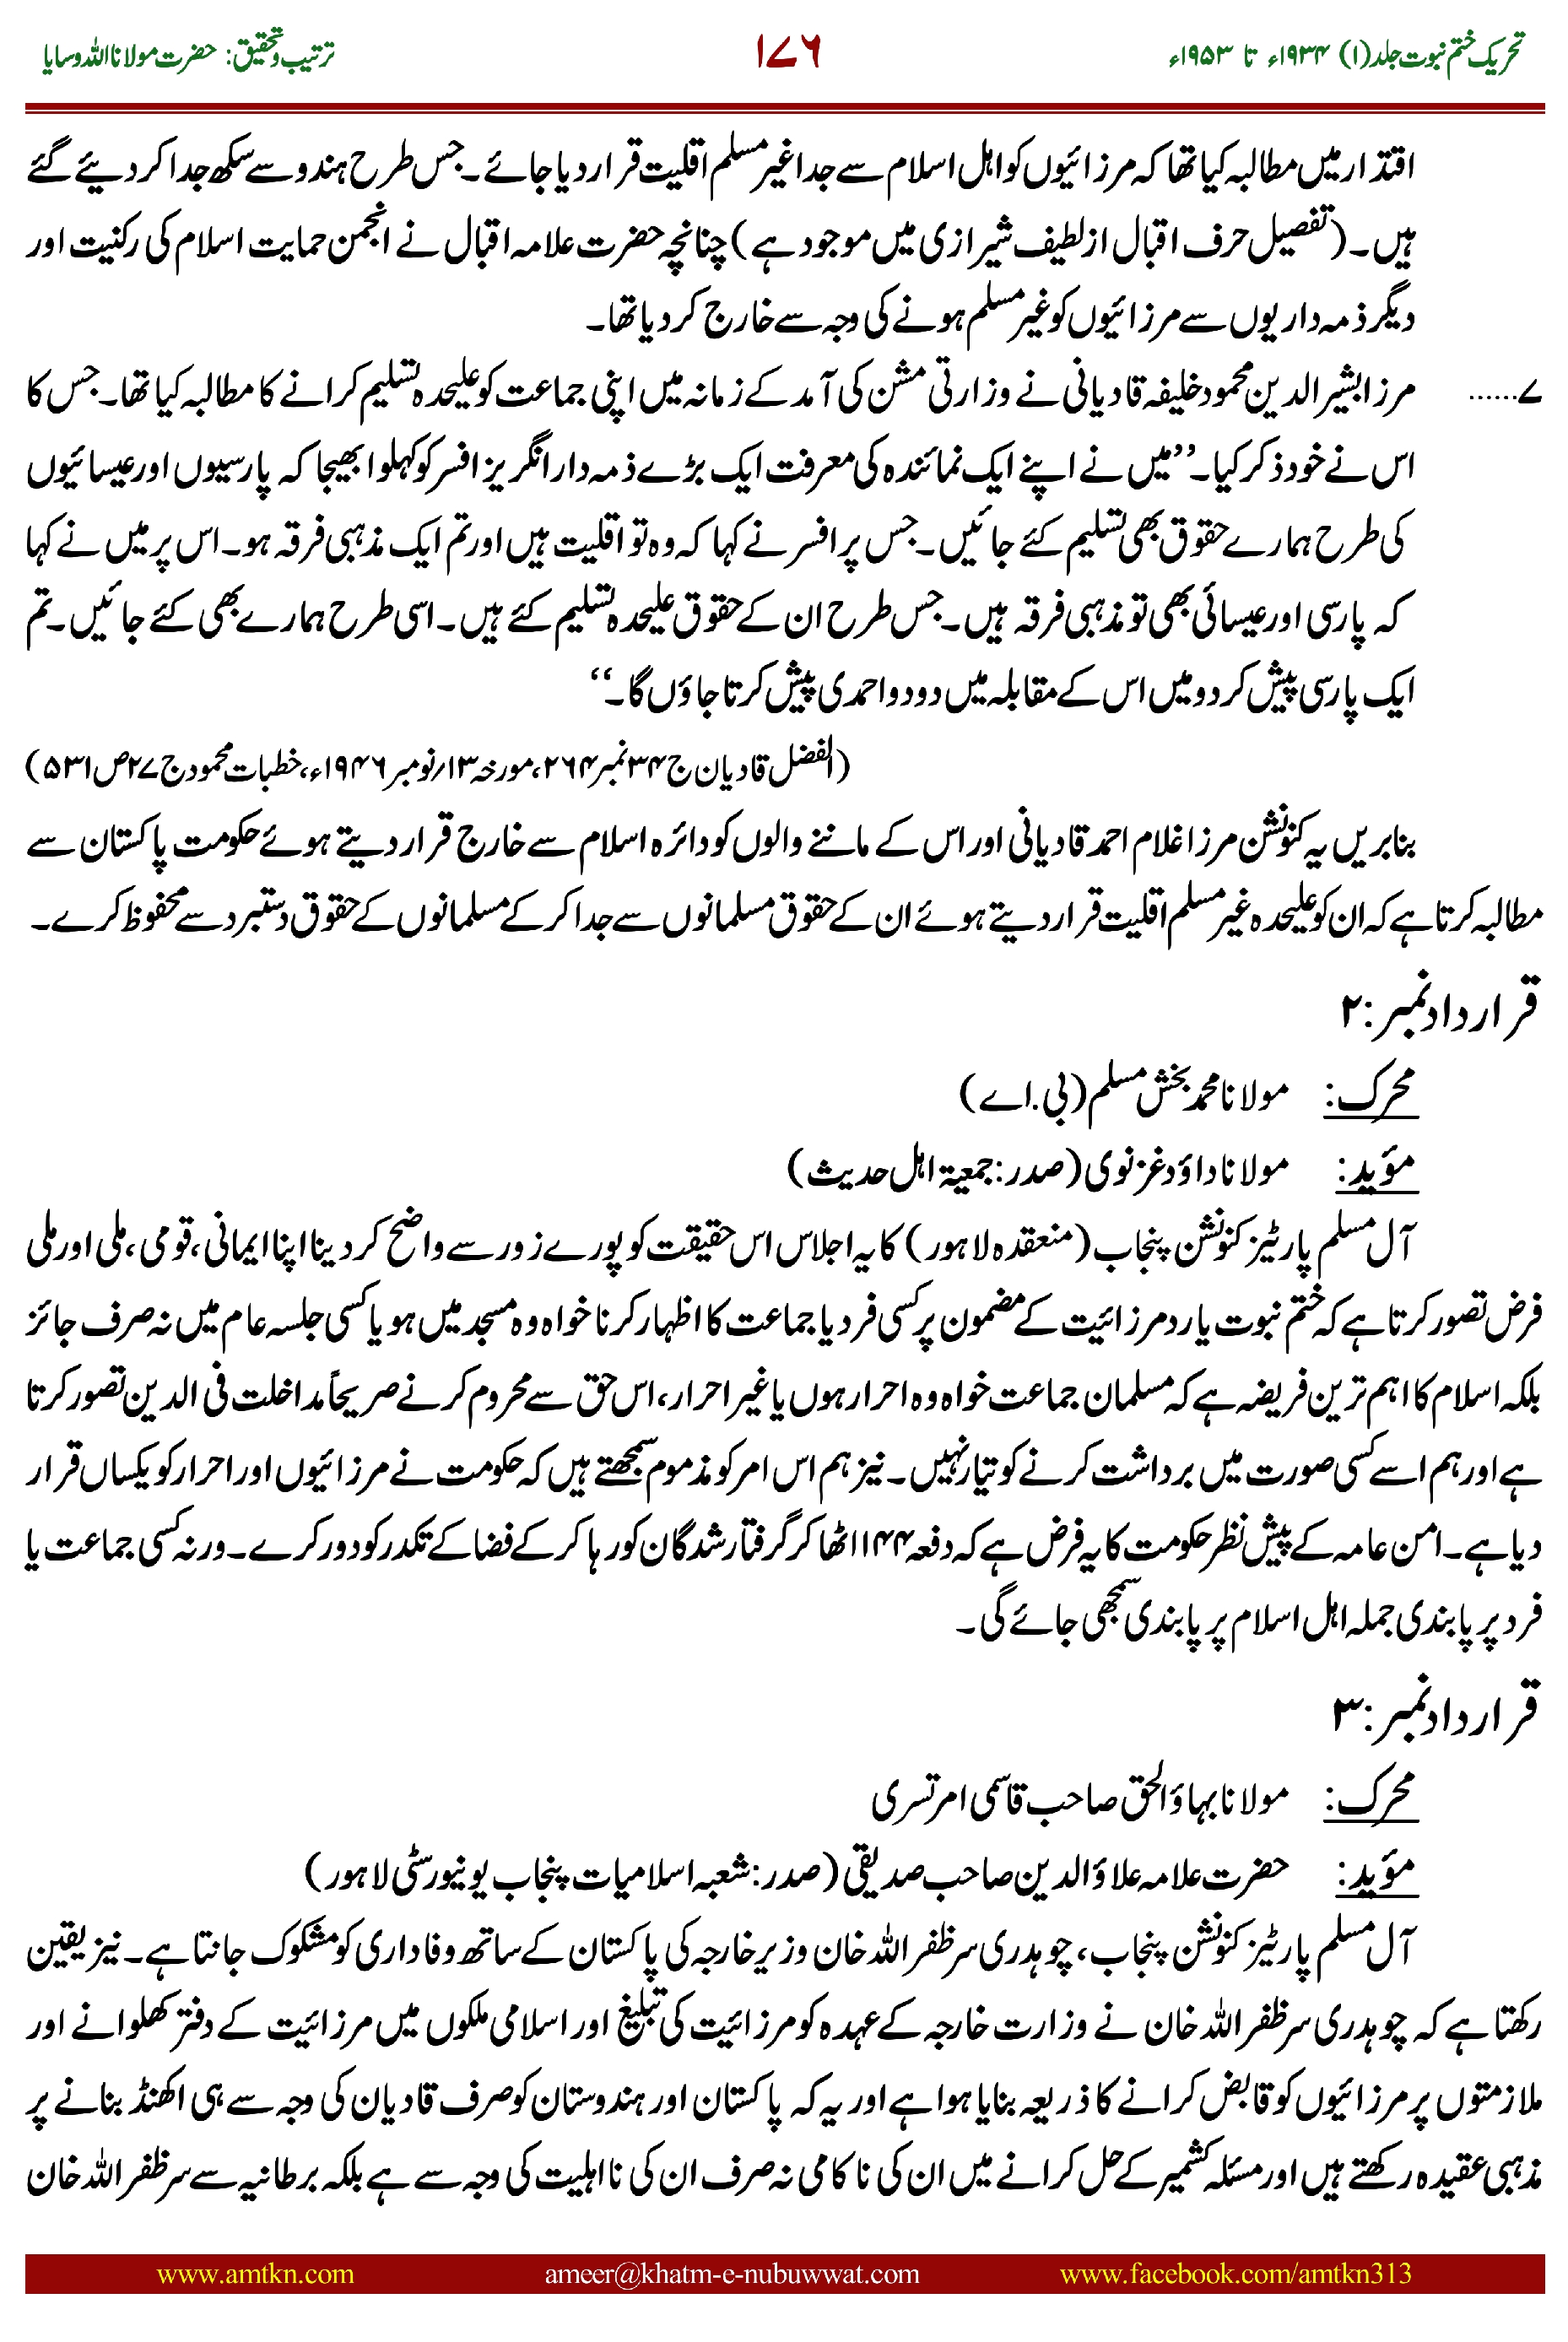 تحریک ختم نبوت جلد(۱) ۱۹۳۴ء تا ۱۹۵۳ء
۱۷۶
ترتیب و تحقیق: حضرت مولانا اللہ وسایا
اقتدار میں مطالبہ کیا تھا کہ مرزائیوں کو اہل اسلام سے جدا غیر مسلم اقلیت قرار دیا جائے۔ جس طرح ہندو سے سکھ جدا کر دیئے گئے
ہیں۔ (تفصیل حرف اقبال از لطیف شیرازی میں موجود ہے) چنانچہ حضرت علامہ اقبال نے انجمن حمایت اسلام کی رکنیت اور
دیگر ذمہ داریوں سے مرزائیوں کو غیر مسلم ہونے کی وجہ سے خارج کر دیا تھا۔
۷...... مرزا بشیر الدین محمود خلیفہ قادیانی نے وزارتی مشن کی آمد کے زمانہ میں اپنی جماعت کو علیحدہ تسلیم کرانے کا مطالبہ کیا تھا۔ جس کا
اس نے خود ذکر کیا۔ ’’میں نے اپنے ایک نمائندہ کی معرفت ایک بڑے ذمہ دار انگریز افسر کو کہلوا بھیجا کہ پارسیوں اور عیسائیوں
کی طرح ہمارے حقوق بھی تسلیم کئے جائیں۔ جس پر افسر نے کہا کہ وہ تو اقلیت ہیں اور تم ایک مذہبی فرقہ ہو۔ اس پر میں نے کہا
کہ پارسی اور عیسائی بھی تو مذہبی فرقہ ہیں۔ جس طرح ان کے حقوق علیحدہ تسلیم کئے ہیں۔ اسی طرح ہمارے بھی کئے جائیں۔ تم
ایک پارسی پیش کر دو میں اس کے مقابلہ میں دو دو احمدی پیش کرتا جاؤں گا۔‘‘
(الفضل قادیان ج۳۴ نمبر۲۶۴، مورخہ ۱۳؍نومبر ۱۹۴۶ء، خطبات محمود ج۲۷ ص۵۳۱)
بنابریں یہ کنونشن مرزا غلام احمد قادیانی اور اس کے ماننے والوں کو دائرہ اسلام سے خارج قرار دیتے ہوئے حکومت پاکستان سے
مطالبہ کرتا ہے کہ ان کو علیحدہ غیر مسلم اقلیت قرار دیتے ہوئے ان کے حقوق مسلمانوں سے جدا کر کے مسلمانوں کے حقوق دستبرد سے محفوظ کرے۔
قرارداد نمبر:۲
محرک: مولانا محمد بخش مسلم (بی.اے)
مؤید: مولانا داؤد غزنوی (صدر: جمعیۃ اہل حدیث)
آل مسلم پارٹیز کنونشن پنجاب (منعقدہ لاہور) کا یہ اجلاس اس حقیقت کو پورے زور سے واضح کر دینا اپنا ایمانی، قومی، ملی اور ملی
فرض تصور کرتا ہے کہ ختم نبوت یا رد مرزائیت کے مضمون پر کسی فرد یا جماعت کا اظہار کرنا خواہ وہ مسجد میں ہو یا کسی جلسہ عام میں نہ صرف جائز
بلکہ اسلام کا اہم ترین فریضہ ہے کہ مسلمان جماعت خواہ وہ احرار ہوں یا غیر احرار، اس حق سے محروم کرنے صریحاً مداخلت فی الدین تصور کرتا
ہے اور ہم اسے کسی صورت میں برداشت کرنے کو تیار نہیں۔ نیز ہم اس امر کو مذموم سمجھتے ہیں کہ حکومت نے مرزائیوں اور احرار کو یکساں قرار
دیا ہے۔ امن عامہ کے پیش نظر حکومت کا یہ فرض ہے کہ دفعہ ۱۴۴ اٹھا کر گرفتار شدگان کو رہا کر کے فضا کے تکدر کو دور کرے۔ ورنہ کسی جماعت یا
فرد پر پابندی جملہ اہل اسلام پر پابندی سمجھی جائے گی۔
قرارداد نمبر:۳
محرک: مولانا بہاؤ الحق صاحب قاسمی امرتسری
مؤید: حضرت علامہ علاؤ الدین صاحب صدیقی (صدر: شعبہ اسلامیات پنجاب یونیورسٹی لاہور)
آل مسلم پارٹیز کنونشن پنجاب، چوہدری سر ظفر اللہ خان وزیر خارجہ کی پاکستان کے ساتھ وفاداری کو مشکوک جانتا ہے۔ نیز یقین
رکھتا ہے کہ چوہدری سر ظفر اللہ خان نے وزارت خارجہ کے عہدہ کو مرزائیت کی تبلیغ اور اسلامی ملکوں میں مرزائیت کے دفتر کھلوانے اور
ملازمتوں پر مرزائیوں کو قابض کرانے کا ذریعہ بنایا ہوا ہے اور یہ کہ پاکستان اور ہندوستان کو صرف قادیان کی وجہ سے ہی اکھنڈ بنانے پر
مذہبی عقیدہ رکھتے ہیں اور مسئلہ کشمیر کے حل کرانے میں ان کی ناکامی نہ صرف ان کی نااہلیت کی وجہ سے ہے بلکہ برطانیہ سے سر ظفر اللہ خان
www.amtkn.com ameer@khatm-e-nubuwwat.com www.facebook.com/amtkn313